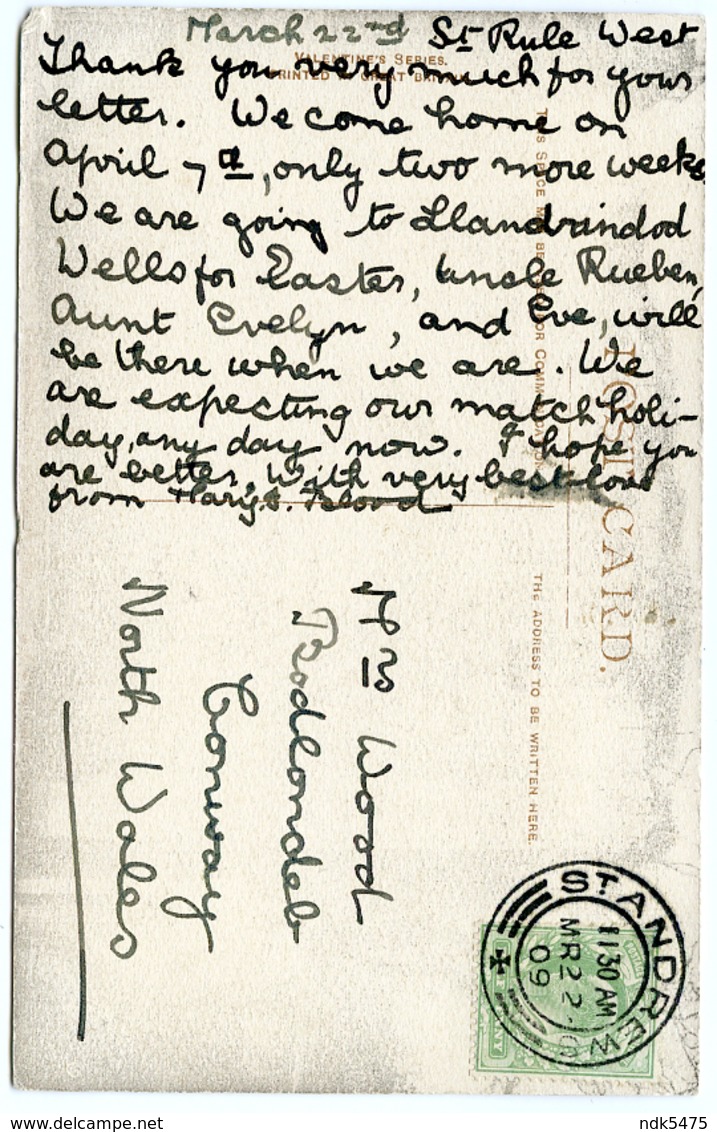 March 22nd St Rule West
VALENTINE'S SERIES.
PRINTED IN GREAT BRITAIN
Thank you very much for your
letter. We come home on
April 7th, only two more weeks.
We are going to Llandrindod
Wells for Easter, Uncle Rueben,
Aunt Evelyn, and Eve, will
be there when we are. We
are expecting our match holi-
day, any day now. I hope you
are better, With very best love
from Mary. S. Blood
POST CARD.
THIS SPACE MAY BE USED FOR COMMUNICATION
THE ADDRESS TO BE WRITTEN HERE.
Mrs Wood
Bodlondeb
Conway
North Wales
ST ANDREWS
11 30 AM
MR 22
09
ndk5475